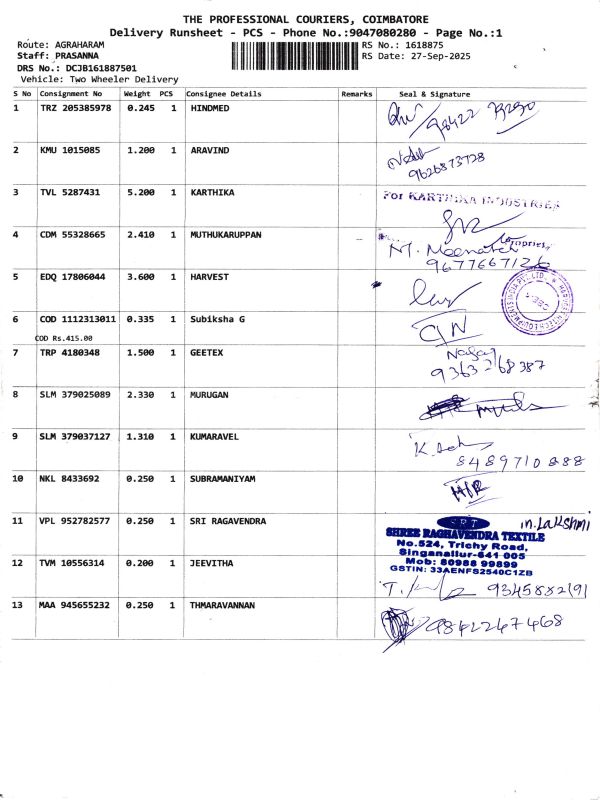 THE PROFESSIONAL COURIERS, COIMBATORE
Delivery Runsheet - PCS - Phone No.:9047080280 - Page No.:1
Route: AGRAHARAM RS No.: 1618875
Staff: PRASANNA RS Date: 27-Sep-2025
DRS No.: DCJB161887501
Vehicle: Two Wheeler Delivery
S No Consignment No Weight PCS Consignee Details Remarks Seal & Signature
1 TRZ 205385978 0.245 1 HINDMED
2 KMU 1015085 1.200 1 ARAVIND
9626873728
3 TVL 5287431 5.200 1 KARTHIKA For KARTHIKA INDUSTRIES
4 CDM 55328665 2.410 1 MUTHUKARUPPAN
M. Meenatchi
9677667126
5 EDQ 17806044 3.600 1 HARVEST
6 COD 1112313011 0.335 1 Subiksha G
COD Rs.415.00
7 TRP 4180348 1.500 1 GEETEX
9363268387
8 SLM 379025089 2.330 1 MURUGAN
9 SLM 379037127 1.310 1 KUMARAVEL
8489710888
10 NKL 8433692 0.250 1 SUBRAMANIYAM
11 VPL 952782577 0.250 1 SRI RAGAVENDRA SRT m.Lakshmi
SHREE RAGHAVENDRA TEXTILE
No.524, Trichy Road,
Singanallur-641 005
Mob: 80988 99899
GSTIN: 33AENFS2540C1ZB
12 TVM 10556314 0.200 1 JEEVITHA
9345882191
13 MAA 945655232 0.250 1 THMARAVANNAN
9842247468